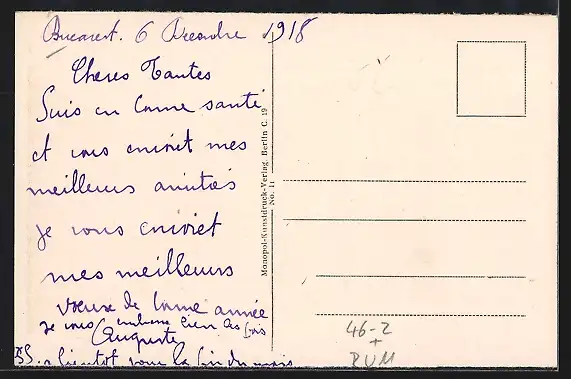 Bucarest. 6 Decembre 1918
Cheres Tantes
Suis en bonne santé
et vous envoit mes
meilleurs amitiés
je vous enviet
mes meilleurs
voeux de bonne année
je vous embrasse bien des fois
Auguste
PS. a bientot pour la fin du mois
Monopol-Kunstdruck-Verlag Berlin C. 19
No. 11
46-2
+
RUM